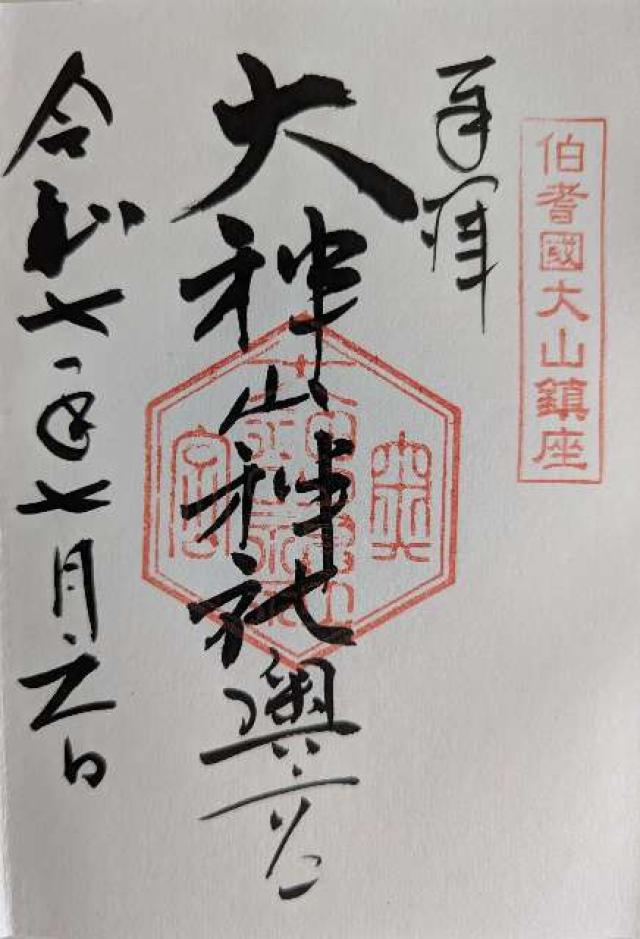 伯耆國大山鎮座
奉拝
大神山神社奥宮
令和七年七月六日